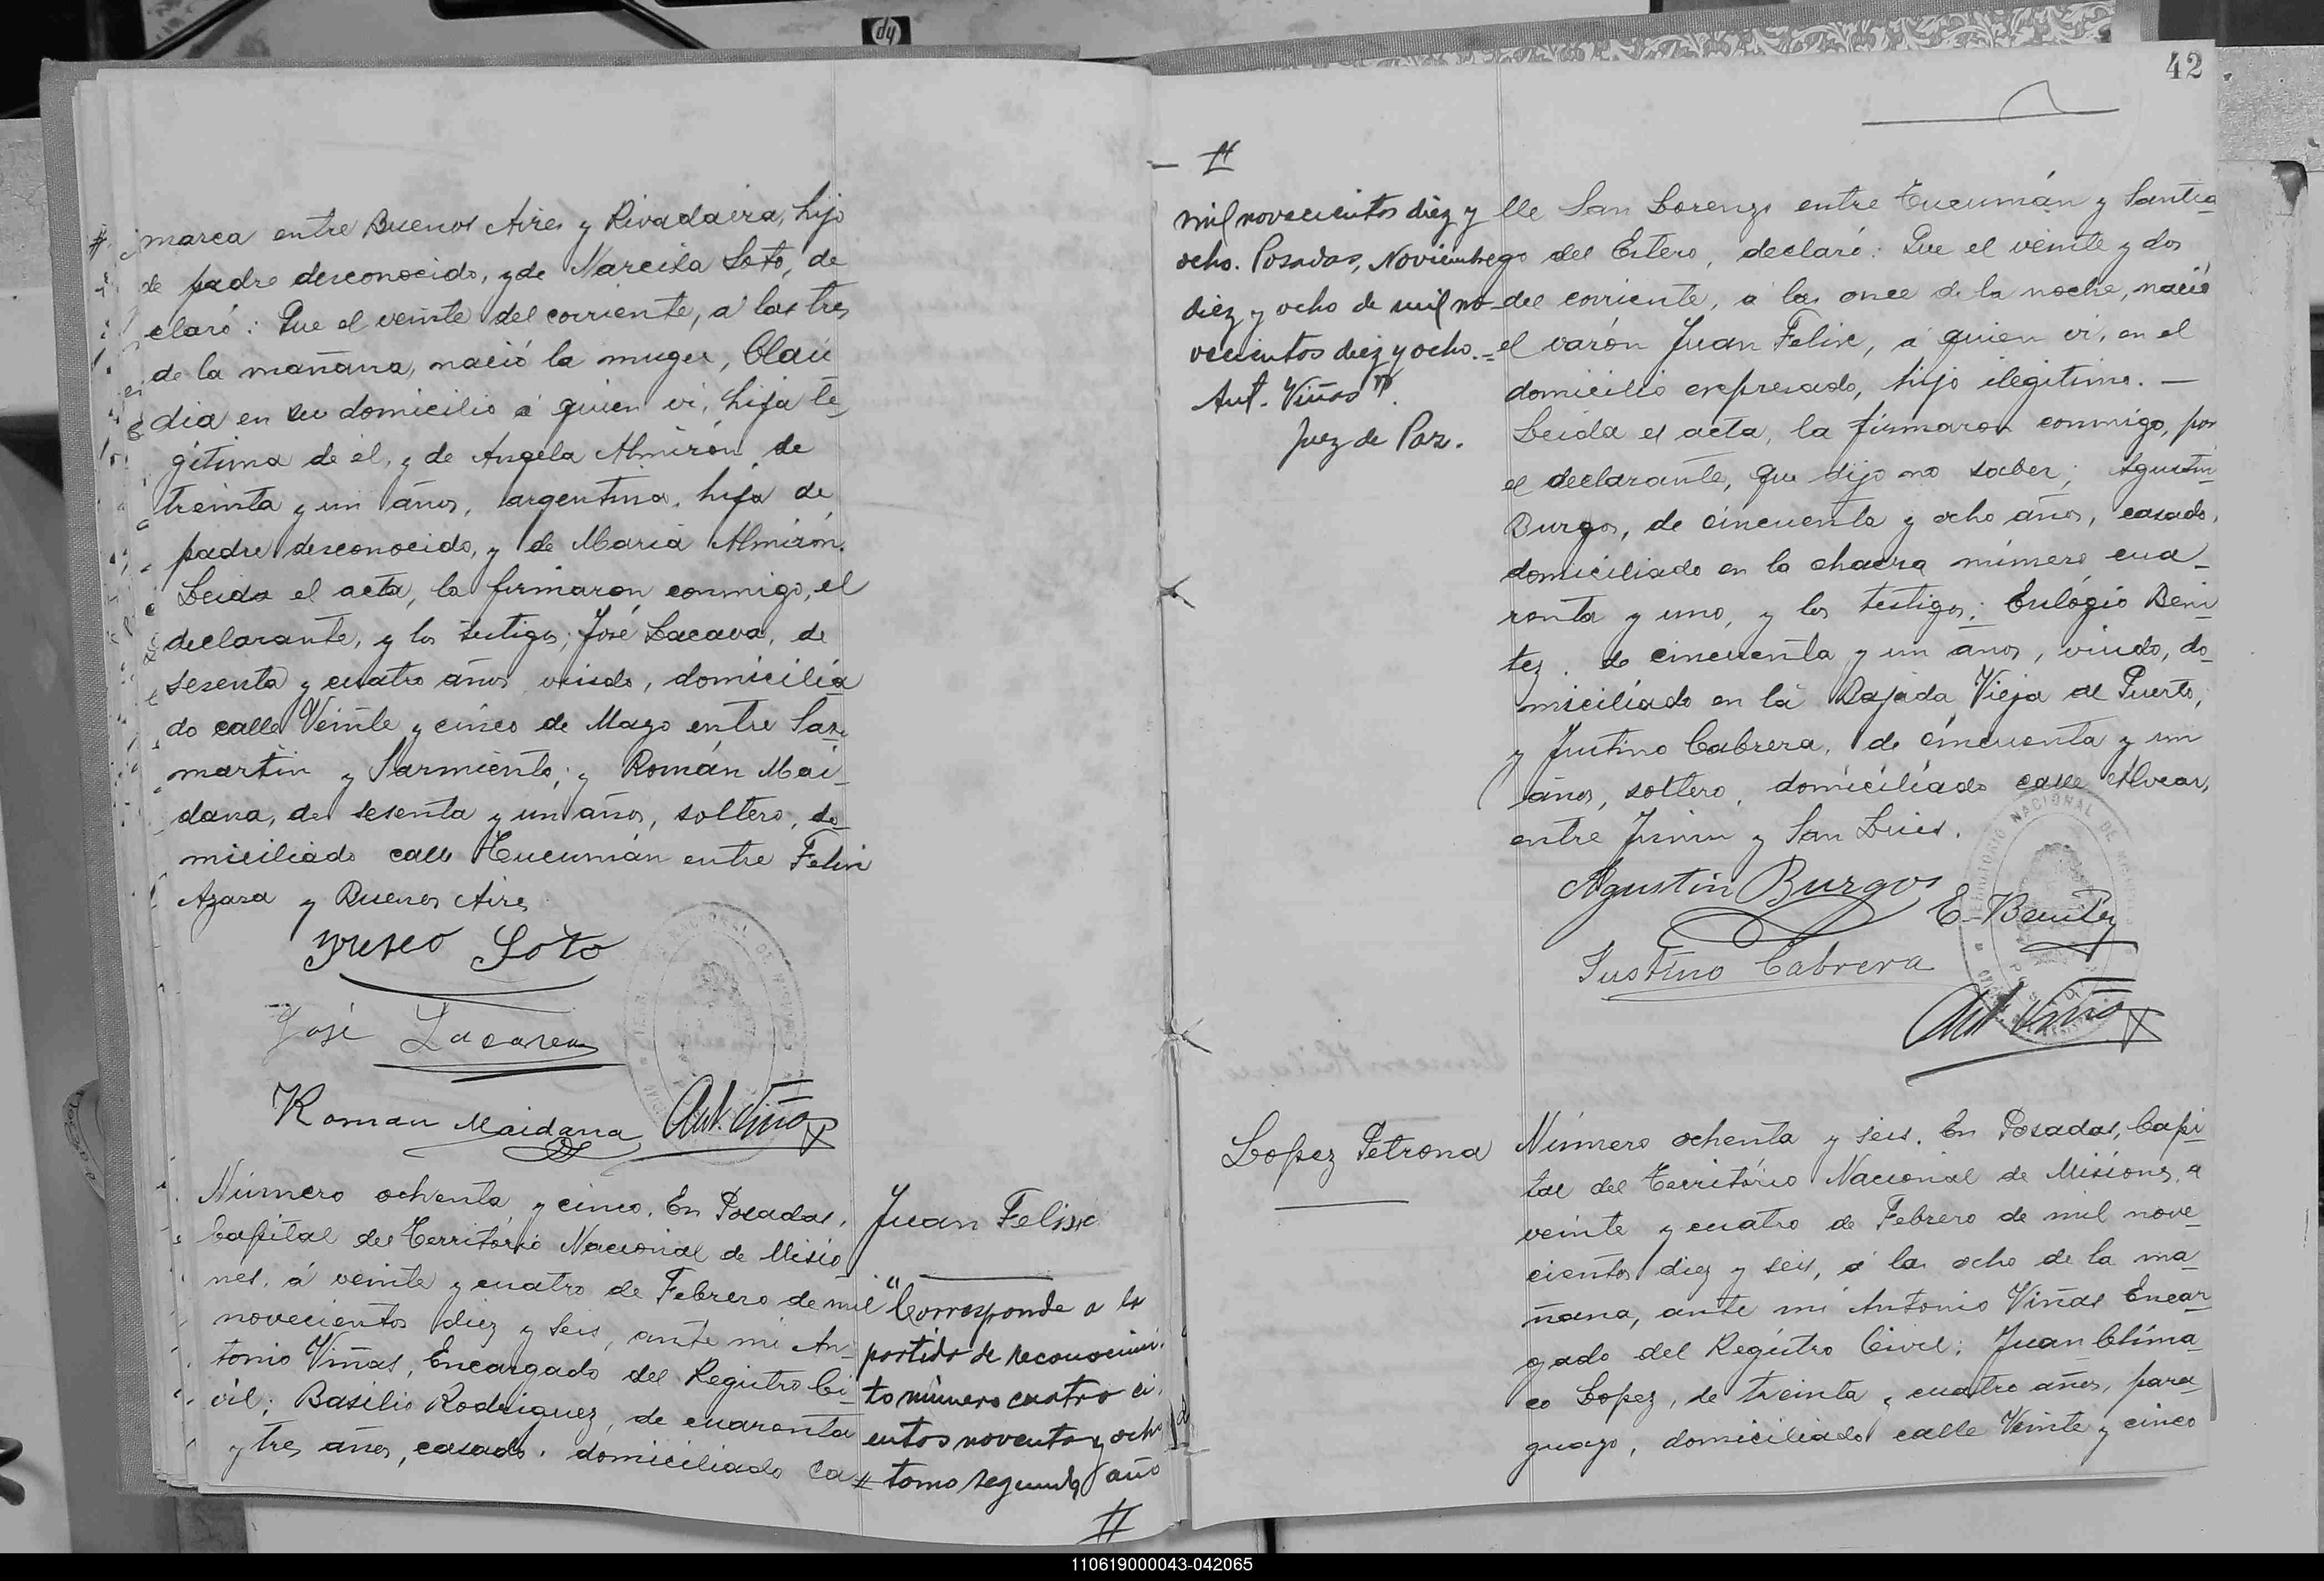 marca entre Buenos Aires y Rivadavia, hijo
de padre desconocido, y de Narcisa Soto, de
claró: Que el veinte del corriente, a las tres
de la mañana, nació la muger, Clau
dia en su domicilio á quien vi, hija le
gitima de él, y de Angela Almirón de
treinta y un años, argentina, hija de
padre desconocido, y de Maria Almirón.
Leida el acta, la firmaron conmigo, el
declarante, y los testigos; José Lacava, de
sesenta y cuatro años viudo, domicilia
do calle Veinte y cinco de Mayo entre San
martin y Sarmiento; y Román Mai
dana, de sesenta y un años, soltero, do
miciliado calle Tucumán entre Felix
Azara y Buenos Aires
Soto
José Lacava
Roman Maidana Ant. Viñas
Número ochenta y cinco. En Posadas,
Capital del Território Nacional de Misio
nes, á veinte y cuatro de Febrero de mil
novecientos diez y seis, ante mi An
tonio Viñas, Encargado del Registro Ci
vil; Basilio Rodriguez, de cuarenta
y tres años, casado, domiciliado ca
Juan Felix
"Corresponde a la
partida de reconocimi
to número cuatro ci
entos noventa y ocho
# tomo segundo año
#
42
#
mil novecientos diez y
ocho. Posadas, Noviembre
diez y ocho de mil no
vecientos diez y ocho.=
Ant. Viñas".
Juez de Paz.
lle San Lorenzo entre Tucumán y Santia
go del Estero, declaró: Que el veinte y dos
del corriente, á las once de la noche, nació
el varón Juan Felix, á quien vi, en el
domicilio expresado, hijo ilegitimo. —
Leida el acta, la firmaron conmigo, por
el declarante, que dijo no saber; Agustin
Burgos, de cincuenta y ocho años, casado,
domiciliado en la chacra número cua
renta y uno, y los testigos; Eulógio Beni
tez, de cincuenta y un años, viudo, do
miciliado en la Bajada Vieja al Puerto,
y Justino Cabrera, de cincuenta y un
años, soltero, domiciliado calle Alvear,
entre Junin y San Luis.
Agustin Burgos
E. Benitez
Justino Cabrera
Ant. Viñas
Lopez Petrona
Número ochenta y seis. En Posadas, Capi
tal del Território Nacional de Misiones, a
veinte y cuatro de Febrero de mil nove
cientos diez y seis, á las ocho de la ma
ñana, ante mi Antonio Viñas Encar
gado del Registro Civil; Juan Clima
co Lopez, de treinta y cuatro años, para
guayo, domiciliado calle Veinte y cinco
110619000043-042065